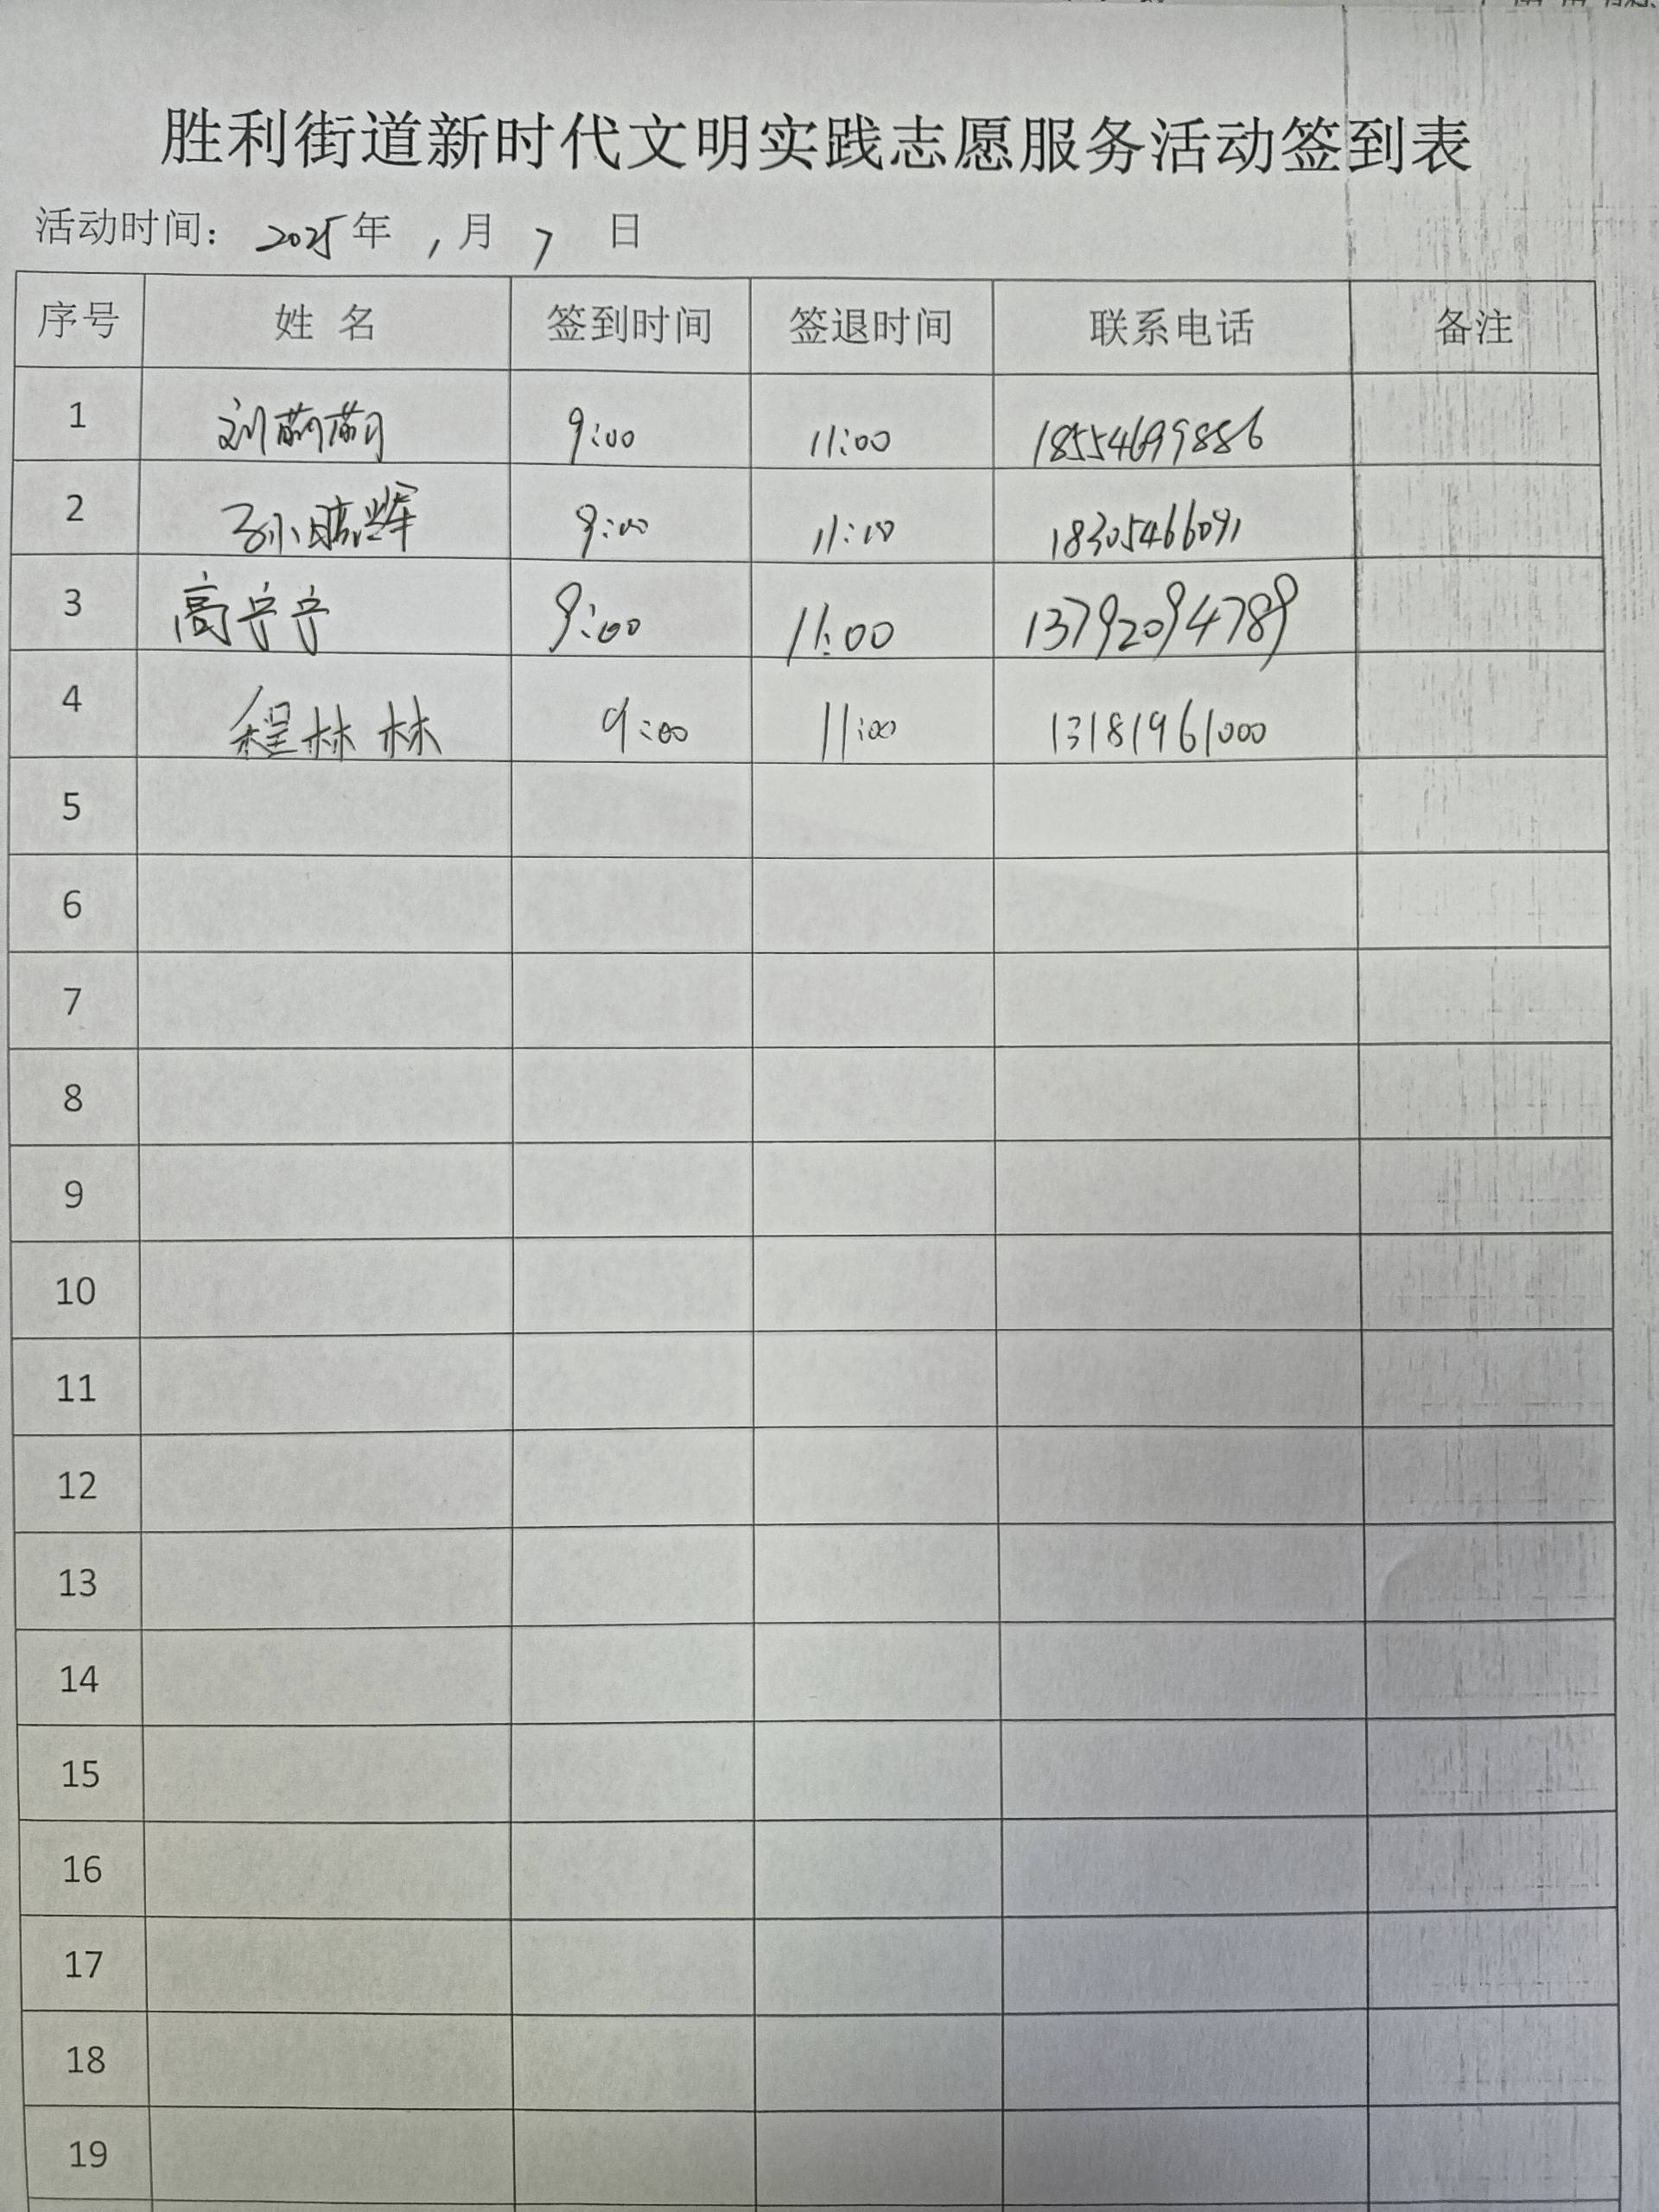 胜利街道新时代文明实践志愿服务活动签到表
活动时间： 2025年 1月 7 日
序号 姓 名 签到时间 签退时间 联系电话 备注
1 刘萌萌 9:00 11:00 18554699886
2 孙晓辉 9:00 11:00 18305466091
3 高宁宁 9:00 11:00 13792094789
4 程林林 9:00 11:00 13181961000
5
6
7
8
9
10
11
12
13
14
15
16
17
18
19